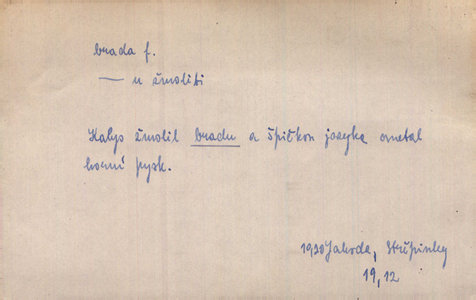 brada f.
— u žmoliti
Halys žmolil bradu a špičkou jazyka ometal
horní pysk.
1920 Jahoda, Střípinky
19, 12